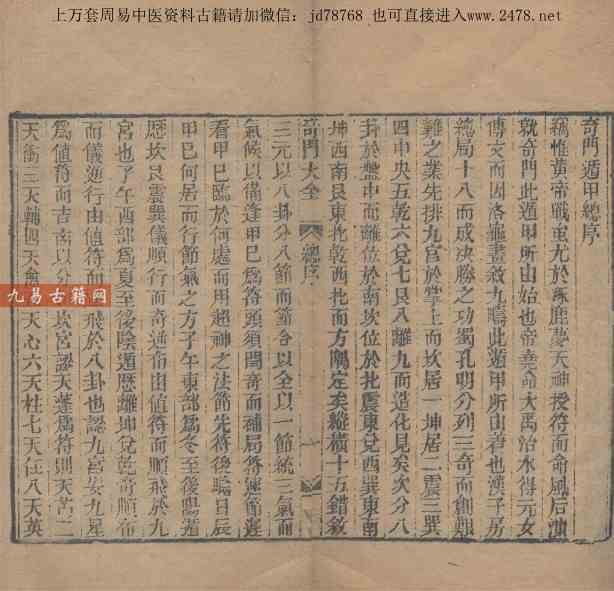 上万套周易中医资料古籍请加微信：jd78768 也可直接进入www.2478.net
奇門遁甲總序
竊惟黃帝戰蚩尤於涿鹿夢天神授符而命風后演
就奇門此遁甲所由始也帝堯命大禹治水得元女
傳文而因洛龜畫敘九疇此遁甲所由著也漢子房
總局十八而成決勝之功蜀孔明分列三奇而創艱
難之業先排九宮於掌上而坎居一坤居二震三巽
四中央五乾六兌七艮八離九而造化見矣次分八
卦於盤中而離位於南坎位於北震東兌西巽東南
坤西南艮東北乾西北而方隅定矣縱橫十五錯敘
奇門大全 總序 一
三元以八卦分八節而節各以全以一節統三氣而
氣候以備逢甲巳爲符頭須閏奇而補局符速節遲
看甲巳臨於何處而用超神之法節先符後瞻日辰
甲巳何居而行節氣之方子午東部爲冬至後陽遁
歷坎艮震巽儀順行而奇逆布由值符而順飛於九
宮也了午酉部爲夏至後陰遁歷離坤兌乾奇順布
而儀逆行由值符而飛於八卦也認九宮安九星
爲値符而吉南以分坎宮認天蓬爲符則天芮二
天衝三天輔四天禽天心六天柱七天任八天英
九易古籍网